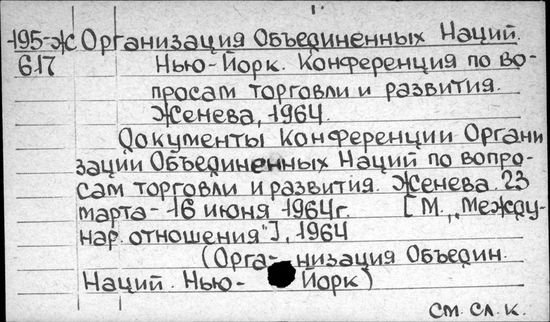 1.
195-Ж Организация Объединенных Наций.
617 Нью-Йорк. Конференция по во-
просам торговли и развития.
Женева, 1964.
Документы Конференции Органи
зации Объединенных Наций по вопро-
сам торговли и развития. Женева. 23
марта - 16 июня 1964г. [М., „Между-
нар. отношения"], 1964
(Орга- низация Объедин.
Наций. Нью- Йорк)
См. сл. к.